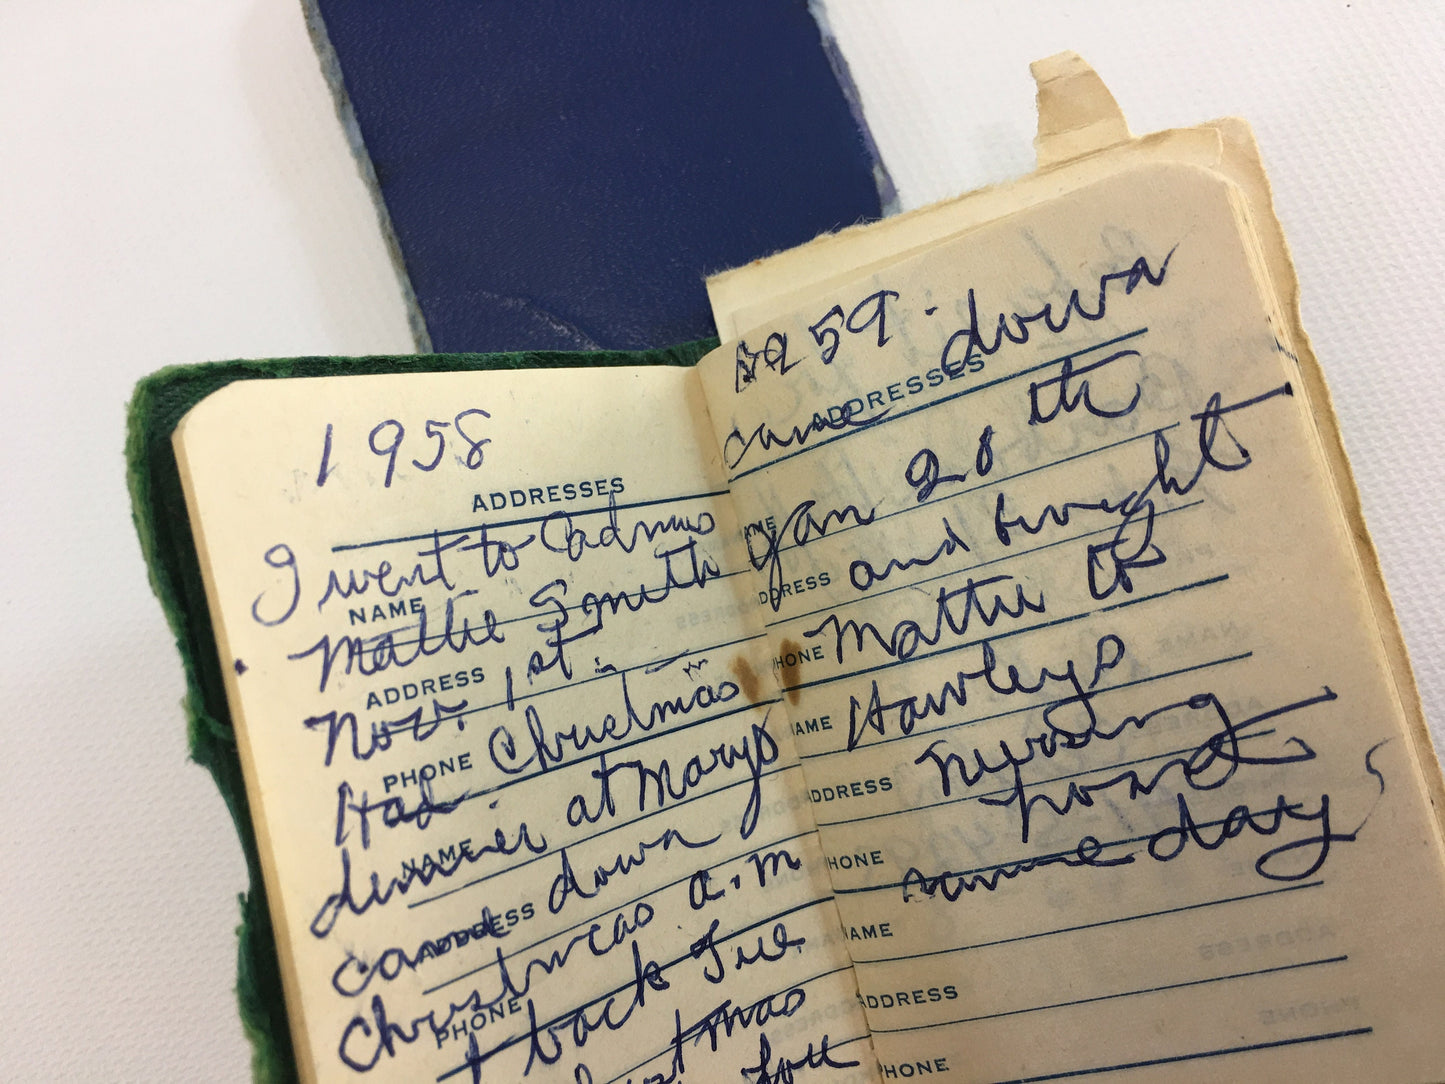 1958
ADDRESSES
I went to Cadmus
NAME
Mattie Smith
ADDRESS
Nov. 1st.
PHONE
Christmas
Had
dinner at Marys
NAME
came down
ADDRESS
Christmas a.m
PHONE
back Tue.
you
1959. down
ADDRESSES
came
NAME
Jan 20th
ADDRESS
and brought
PHONE
Mattie to
NAME
Hawleys
ADDRESS
nursing
home
PHONE
same day
NAME
ADDRESS
PHONE